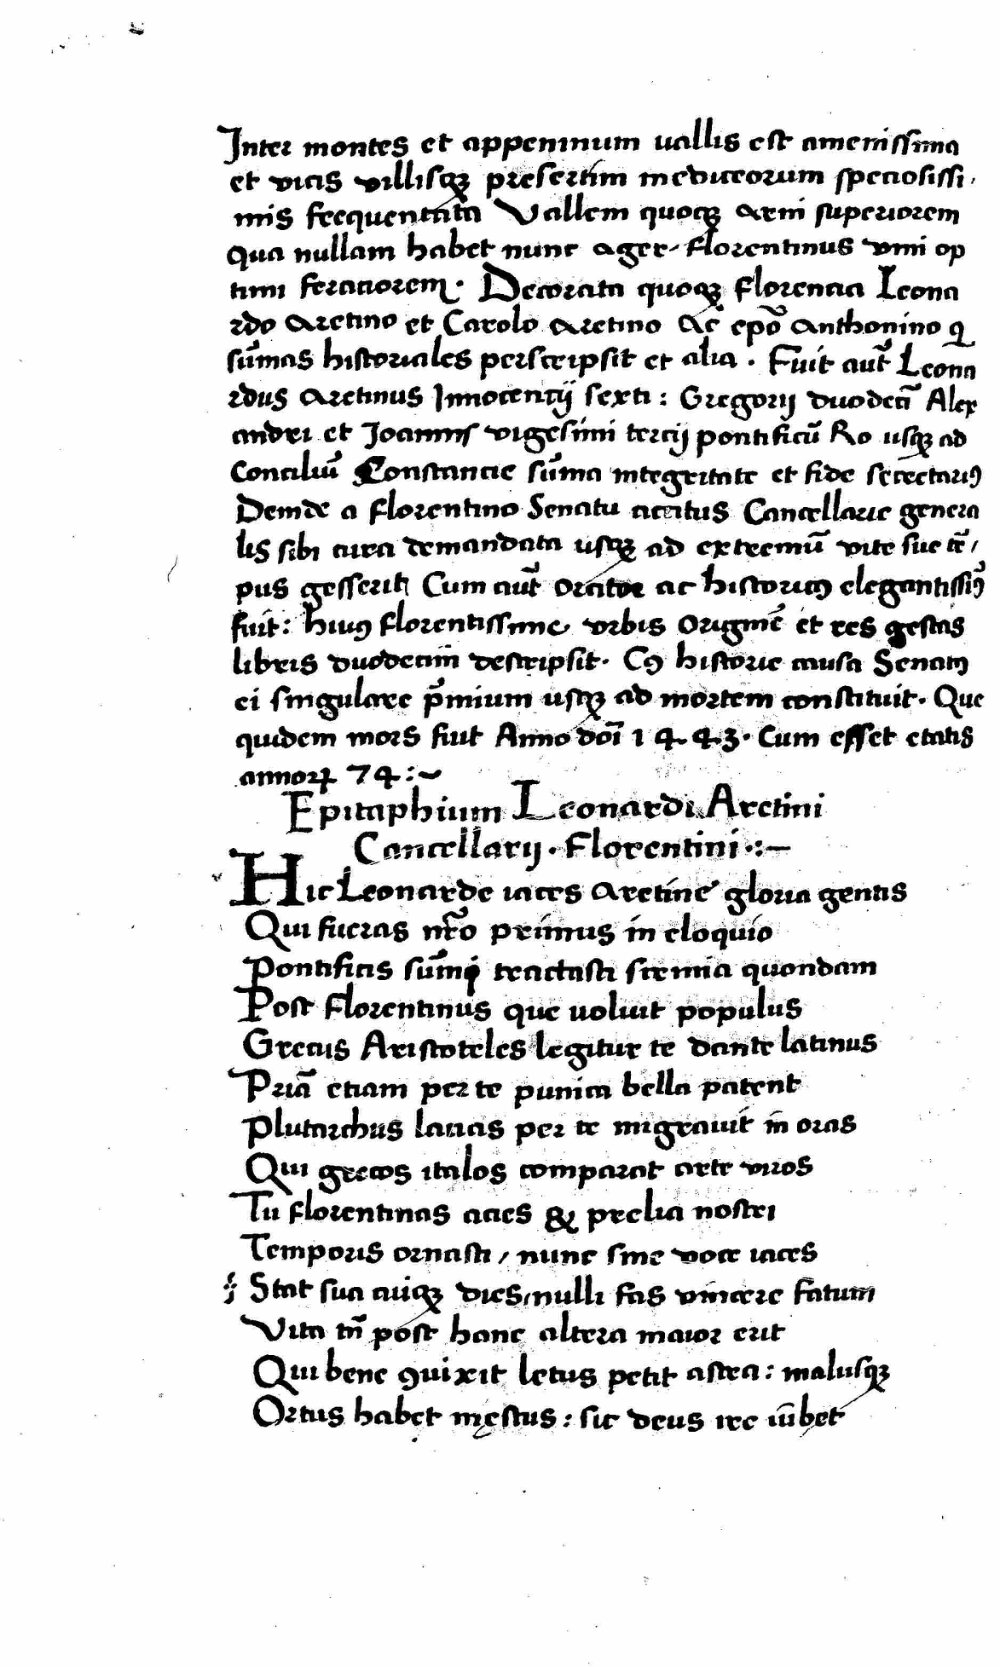 Inter montes et appeninum uallis est amenissima
et vicis villisqꝫ presertim mediceorum speciosissi,
mis frequentata Vallem quoqꝫ Arni superiorem
Qua nullam habet nunc ager florentinus vini op
timi feraciorem. Decorata quoqꝫ florencia Leona
rdo Aretino et Carolo Aretino Ac̄ ep̄o Anthonino q
sūmas historiales perscripsit et alia. Fuit aut̄ Leona
rdus Aretinus Innocencij sexti: Gregorij duodecī Alex
andri et Joannis vigesimi tercij pontificū Ro usqꝫ ad
Conciliū Constancie sūma integritate et fide secretariꝰ
Deinde a florentino Senatu accitus Cancellarie genera
lis sibi cura demandata usqꝫ ad extremū vite sue tē/
pus gesserit Cum aut̄ orator ac historicꝰ elegantissiꝰ
fuit: huiꝰ florentissime vrbis originē et res gestas
libris duodecim descripsit. Cꝰ historie causa Senatꝰ
ei singulare p̄mium usqꝫ ad mortem constituit. Que
quidem mors fuit Anno doī 1443. Cum esset etatis
annoꝝ 74:~
Epitaphium Leonardi Aretini
Cancellarij. Florentini.:~
Hic Leonarde iaces Aretine gloria gentis
Qui fueras nr̄o primus in eloquio
Pontificis sūmi tractasti scrinia quondam
Post florentinus que uoluit populus
Grecus Aristoteles legitur te dante latinus
Priā etiam per te punica bella patent
Plutarchus lacias per te migrauit in oras
Qui grecos italos comparat arte viros
Tu florentinas acies & prelia nostri
Temporis ornasti, nunc sine voce iaces
Stat sua cuiqꝫ dies, nulli fas vincere fatum
Vita tn̄ post hanc altera maior erit
Qui bene quixit letus petit astra: malusqꝫ
Ortus habet męstus: sic deus ire iūbet